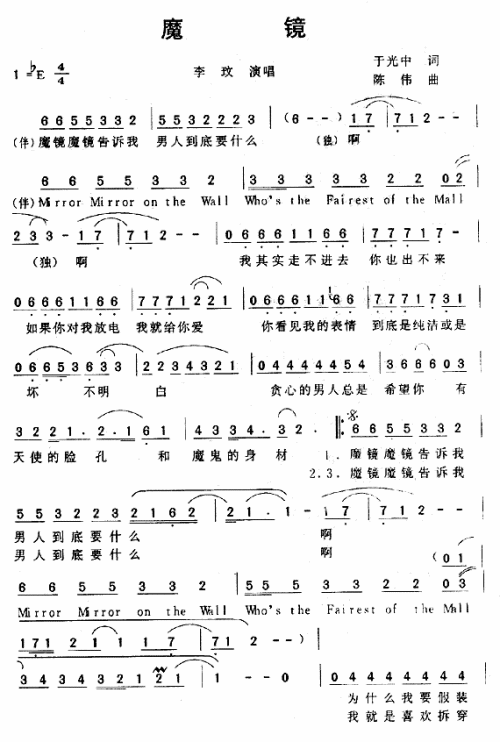 魔 镜
1 ♭E 4/4
李 玟 演唱
于光中 词
陈 伟 曲
6 6 5 5 3 3 2 | 5 5 3 2 2 2 3 | (6 - -) 1 7 | 7 1 2 - - |
(伴)魔镜魔镜告诉我 男人到底要什么 (独)啊
6 6 5 5 3 3 2 | 3 3 3 3 3 2 2 0 2 |
(伴)Mirror Mirror on the Wall Who's the Fairest of the Mall
2 3 3 - 1 7 | 7 1 2 - - | 0 6 6 6 1 1 6 6 | 7 7 7 1 7 - |
(独) 啊 我其实走不进去 你也出不来
0 6 6 6 1 1 6 6 | 7 7 7 1 2 2 1 | 0 6 6 6 1 1 6 6 | 7 7 7 1 7 3 1 |
如果你对我放电 我就给你爱 你看见我的表情 到底是纯洁或是
0 6 6 5 3 6 3 3 | 2 2 3 4 3 2 1 | 0 4 4 4 4 4 5 4 | 3 6 6 6 0 3 |
坏 不明 白 贪心的男人总是 希望你 有
3 2 2 1 . 2 . 1 6 1 | 4 3 3 4 . 3 2 . | 6 6 5 5 3 3 2 |
天使的脸孔 和 魔鬼的身 材 1. 魔镜魔镜告诉我
2.3. 魔镜魔镜告诉我
5 5 3 2 2 3 2 1 6 2 | 2 1 . 1 - 1 7 | 7 1 2 - - |
男人到底要什么 啊
男人到底要什么 啊 (0 1
6 6 5 5 3 3 2 | 5 5 5 3 3 3 2 2 0 3 |
Mirror Mirror on the Wall Who's the Fairest of the Mall
1 7 1 2 1 1 1 7 | 7 1 2 - - ) |
3 4 3 4 3 2 1 2 1 | 1 - - 0 | 0 4 4 4 4 4 4 4 |
为什么我要假装
我就是喜欢拆穿